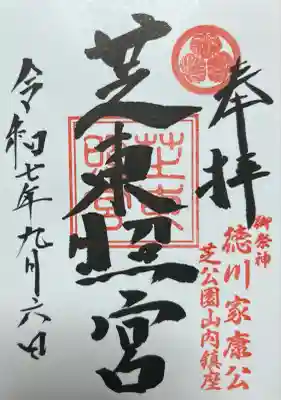 奉拝
御祭神
徳川家康公
芝公園山内鎮座
芝東照宮
令和七年九月六日